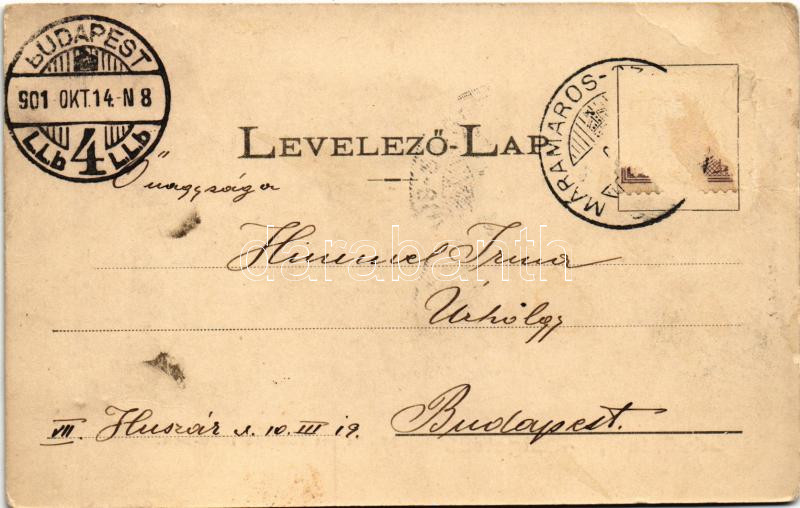 BUDAPEST
901 OKT.14 N 8
4
LEVELEZŐ-LAP
MÁRAMAROS-
Ő nagysága
Himmel Irma
Úrhölgy
VII. Huszár u. 10. III 19. Budapest.
darabanth